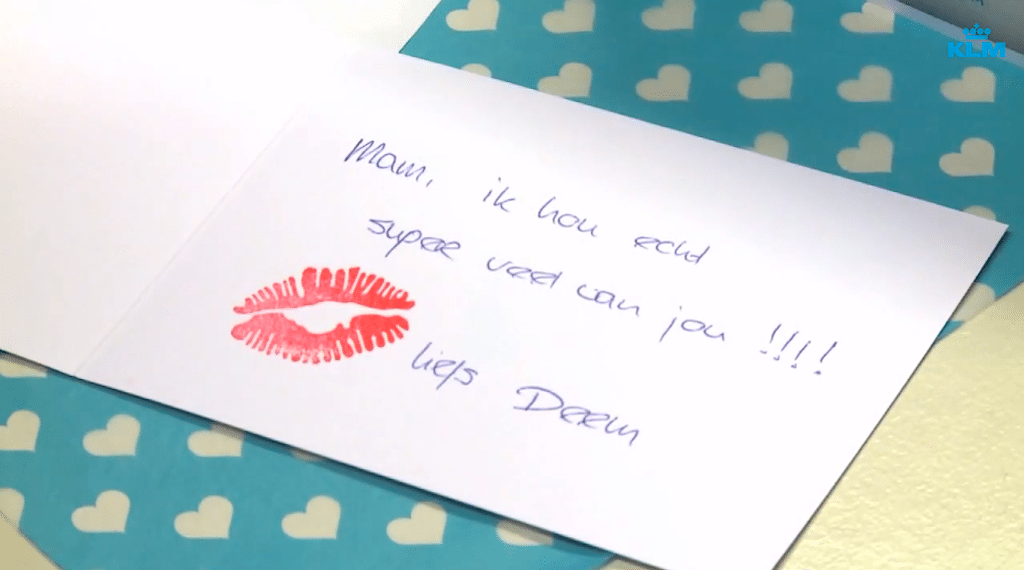 KLM
Mam, ik hou echt
super veel van jou !!!!
liefs Deem